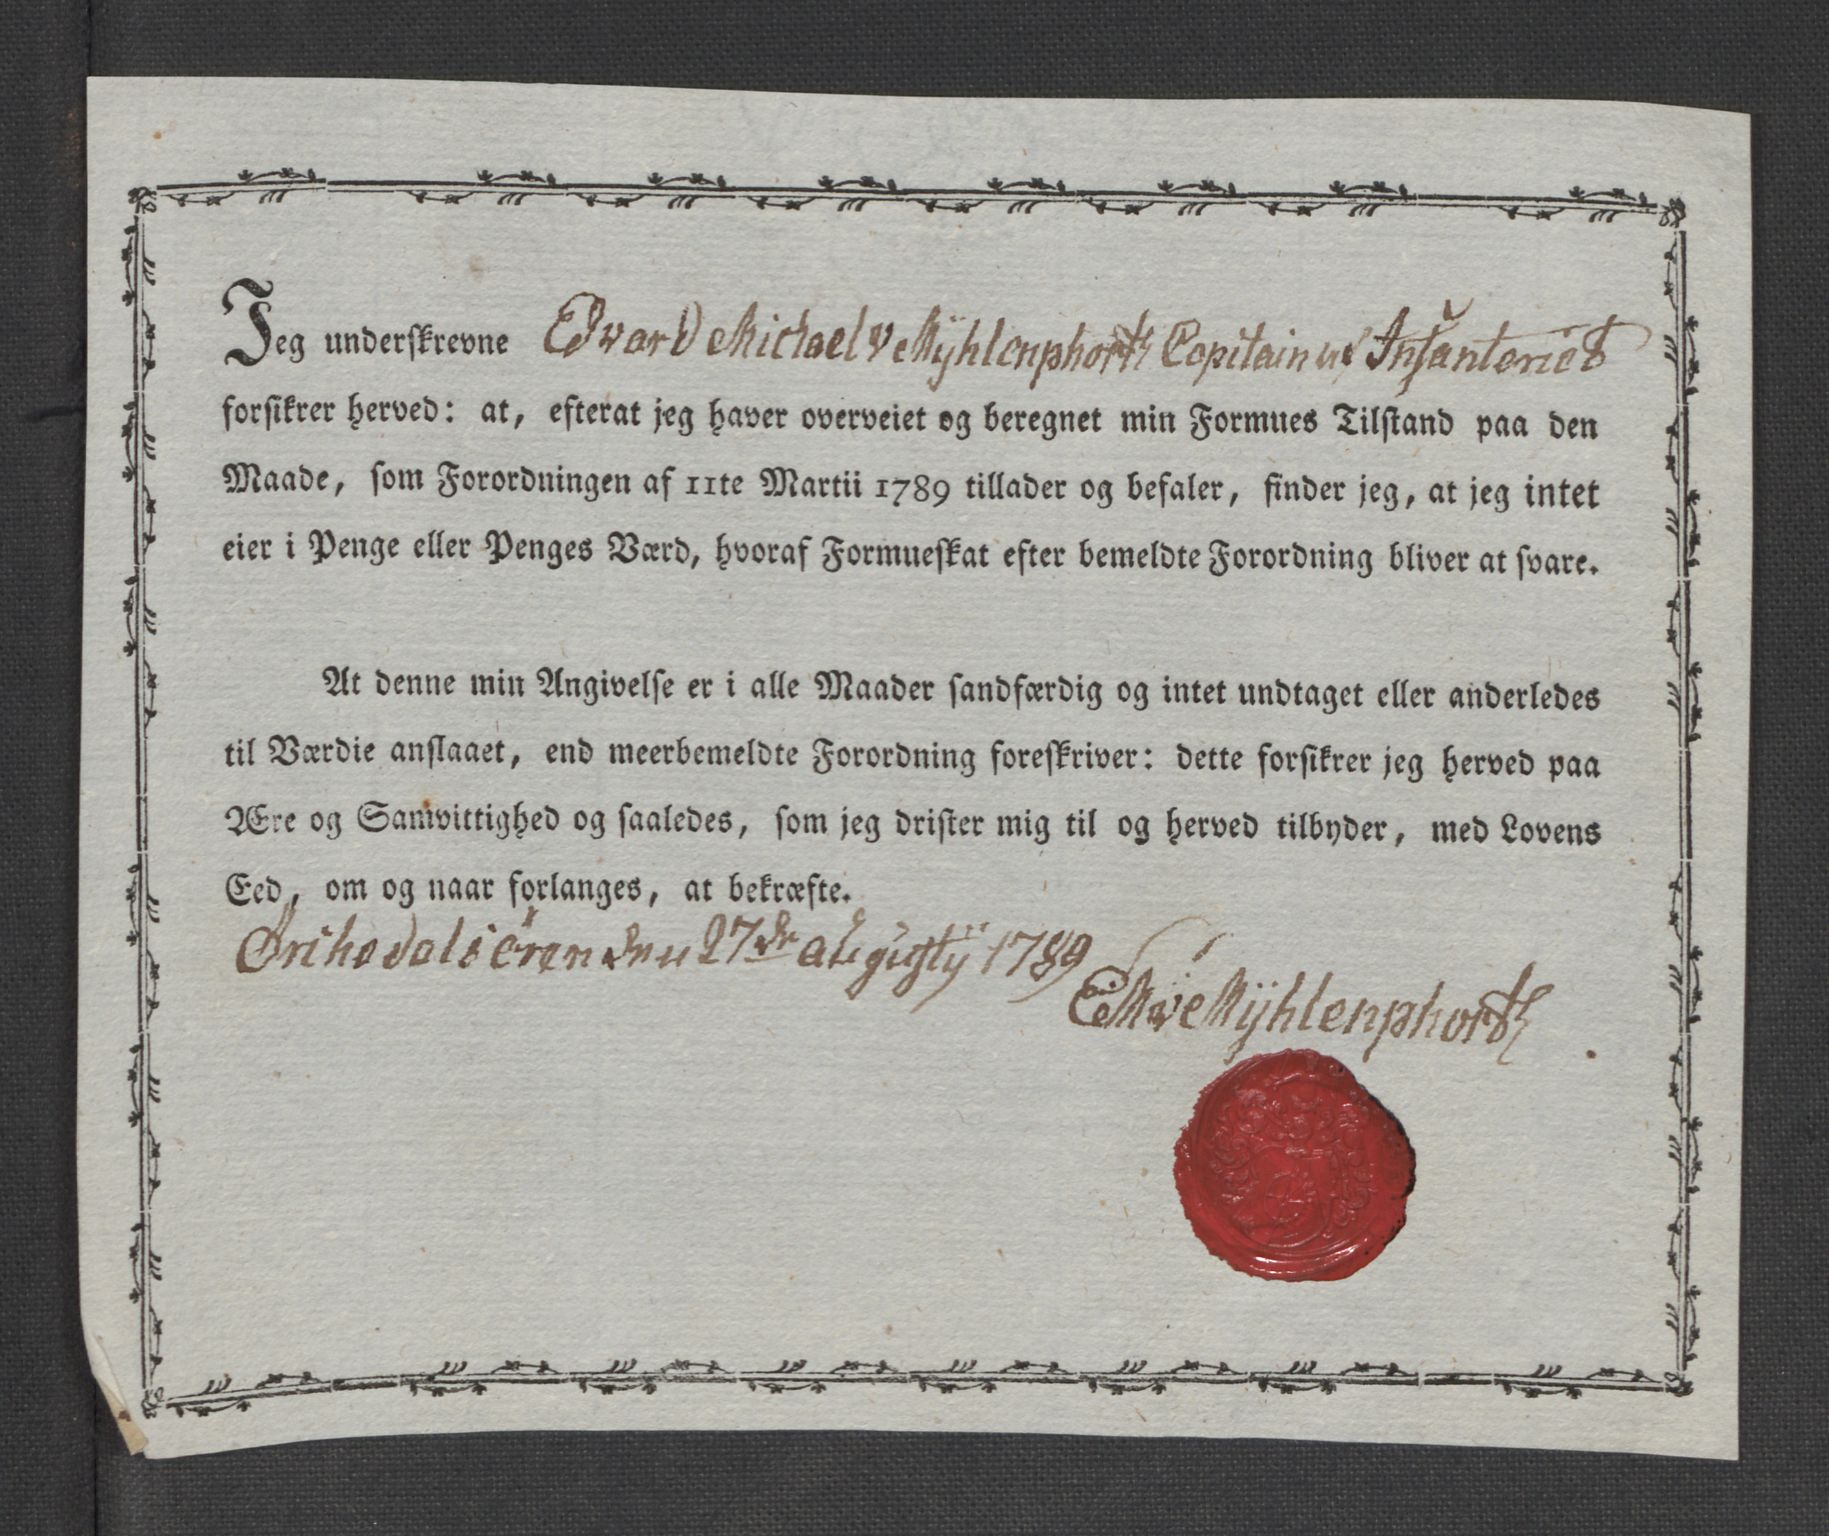 Jeg underskrevne Edvard Michael v Mÿhlenphorth Capitain ved Infanteriet
forsikrer herved: at, efterat jeg haver overveiet og beregnet min Formues Tilstand paa den
Maade, som Forordningen af 11te Martii 1789 tillader og befaler, finder jeg, at jeg intet
eier i Penge eller Penges Værd, hvoraf Formueskat efter bemeldte Forordning bliver at svare.
At denne min Angivelse er i alle Maader sandfærdig og intet undtaget eller anderledes
til Værdie anslaaet, end meerbemeldte Forordning foreskriver: dette forsikrer jeg herved paa
Ære og Samvittighed og saaledes, som jeg drister mig til og herved tilbyder, med Lovens
Eed, om og naar forlanges, at bekræfte.
den 27de augustÿ 1789
EMvMÿhlenphorth